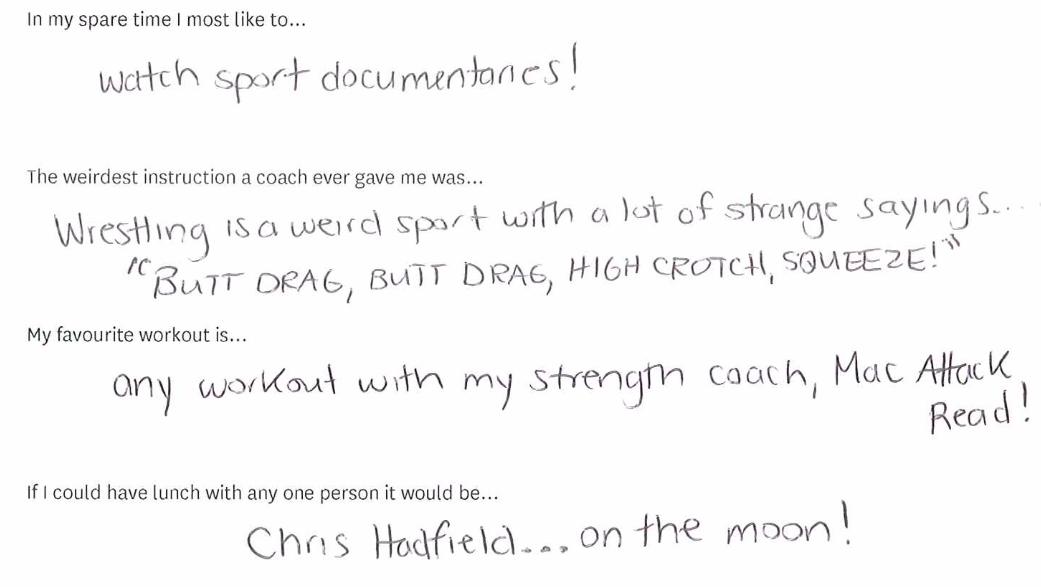 In my spare time I most like to...
watch sport documentaries!
The weirdest instruction a coach ever gave me was...
Wrestling is a weird sport with a lot of strange sayings...
"BUTT DRAG, BUTT DRAG, HIGH CROTCH, SQUEEZE!"
My favourite workout is...
any workout with my strength coach, Mac Attack
Read!
If I could have lunch with any one person it would be...
Chris Hadfield... on the moon!